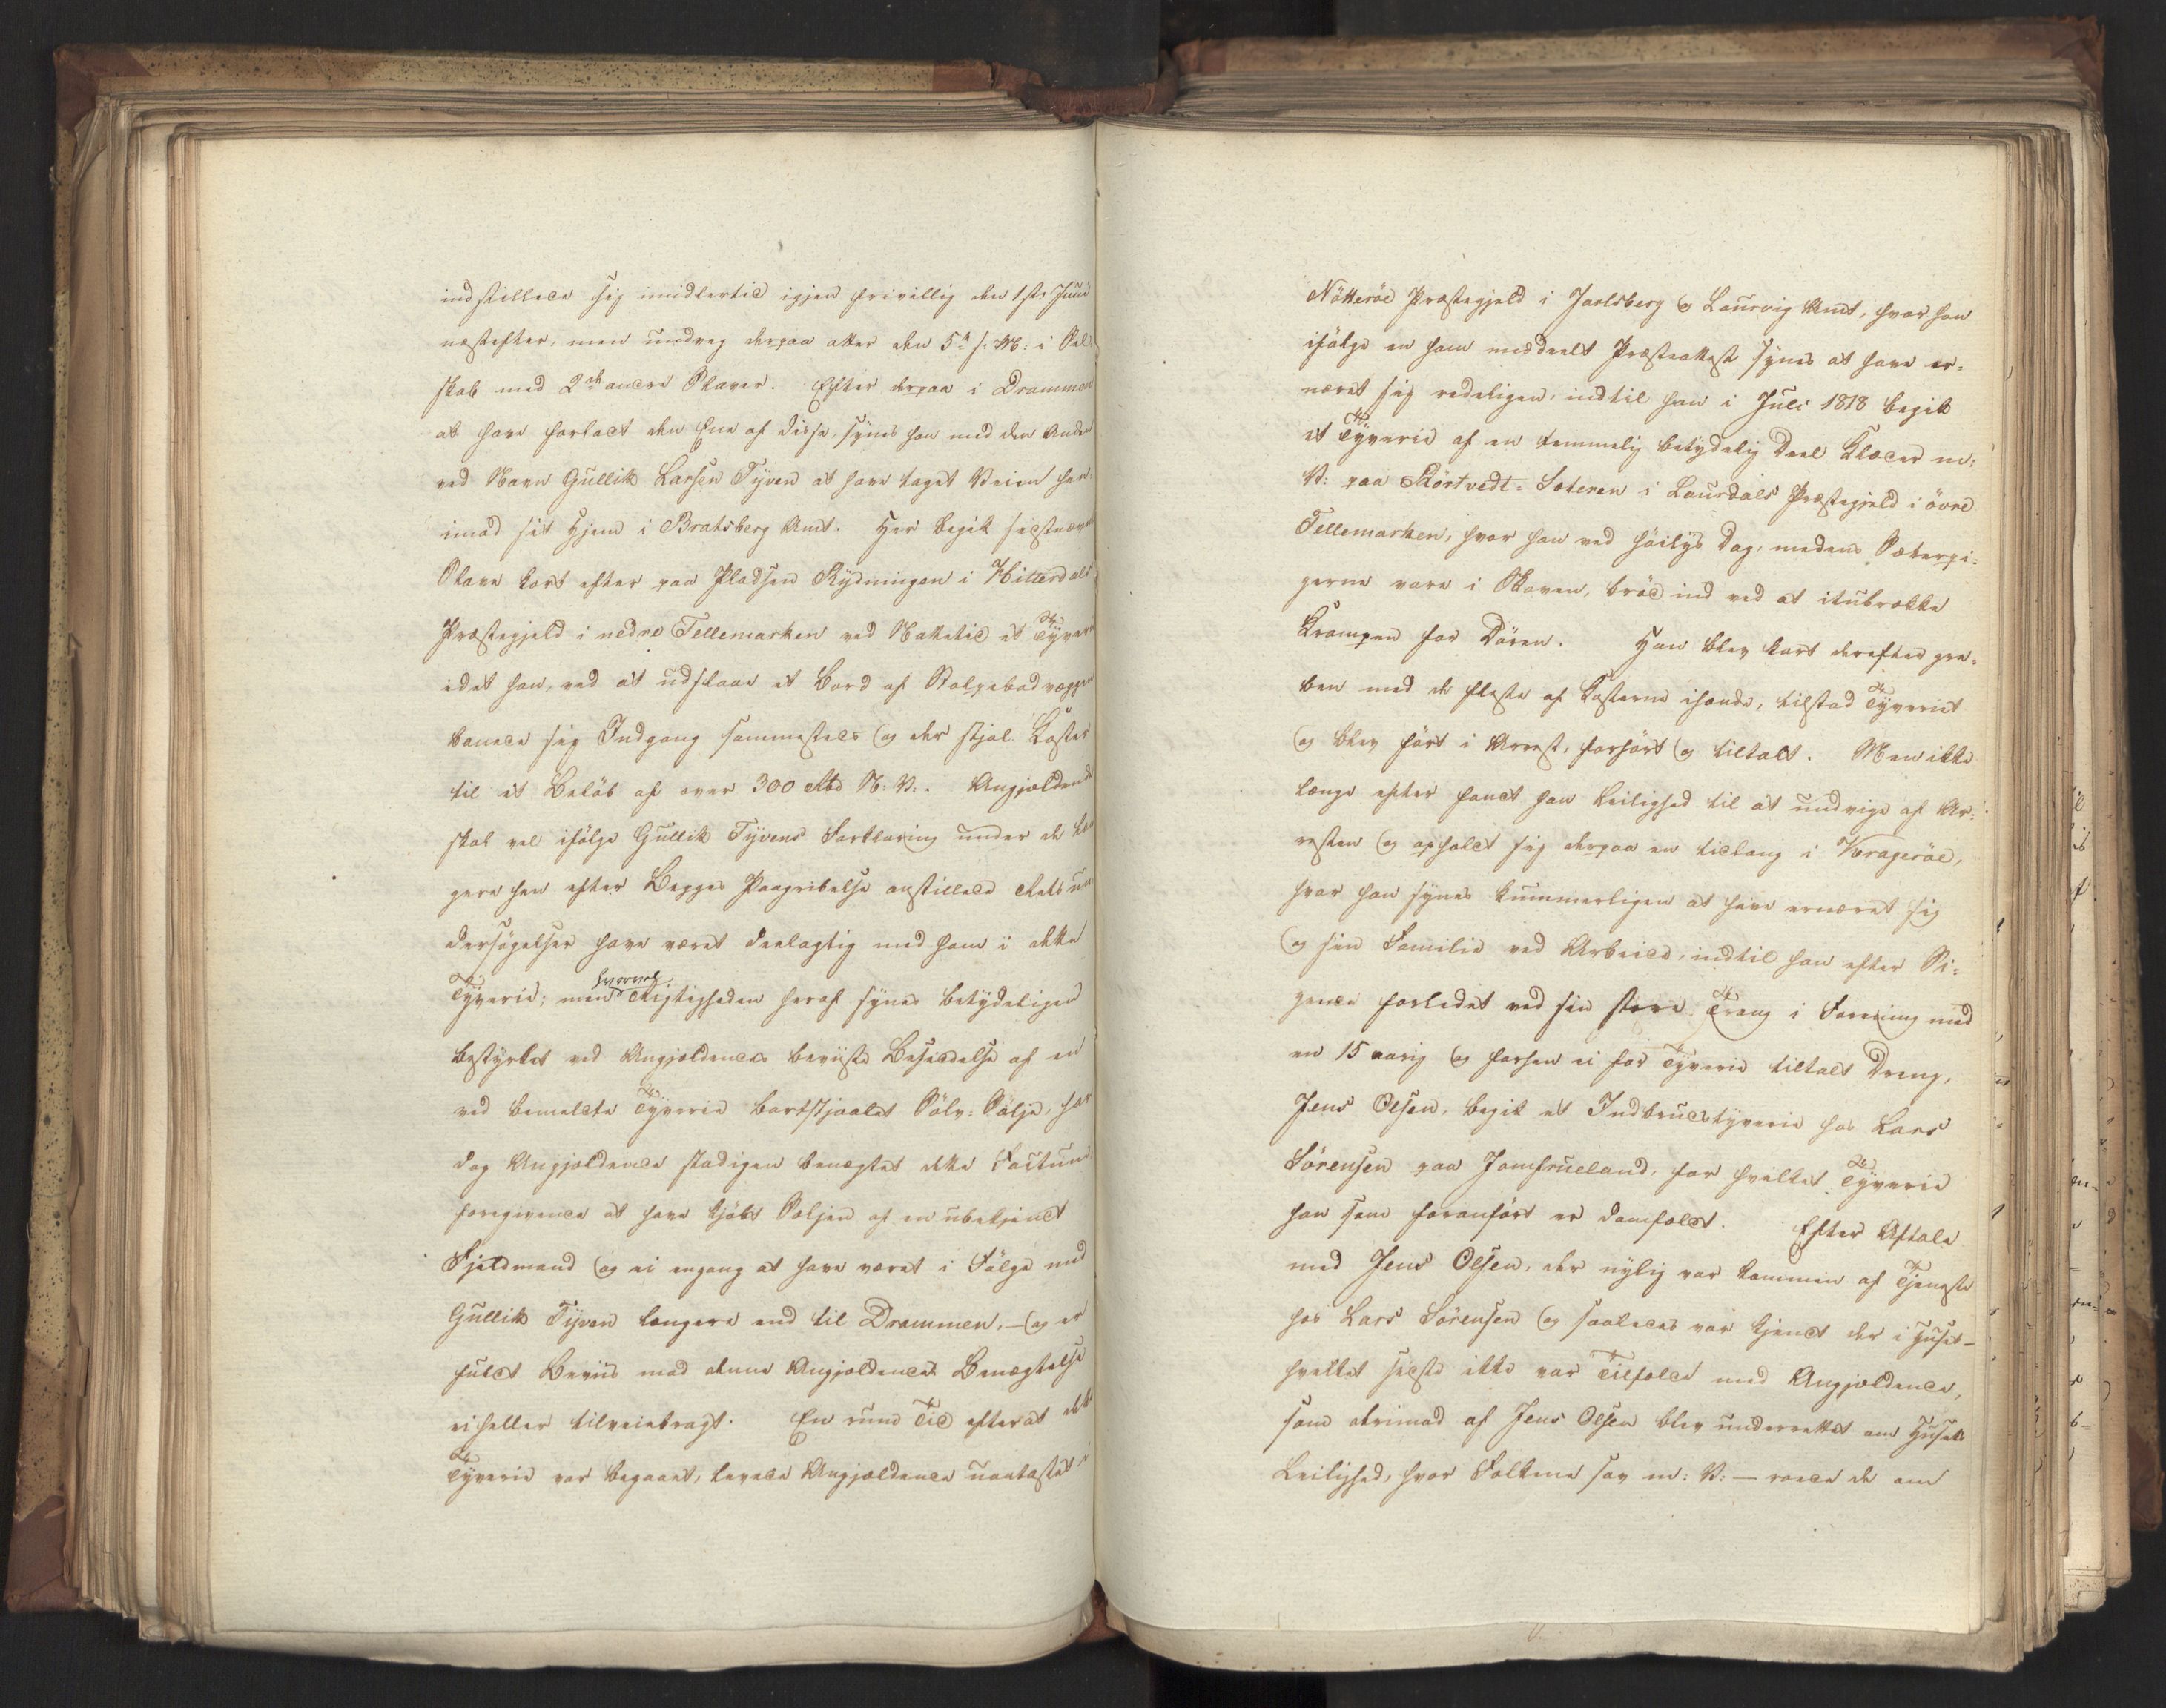 indstillede sig imidlertid igjen frivillig den 1ste Juni
næstefter, men undveg derpaa atter den 5te s: M: i Sel-
skab med 2de andre Slaver. Efter derpaa i Drammen
at have forladt den Ene af disse, synes han med den Anden
ved Navn Gullik Larsen Tyven at have taget Veien her-
imod sit Hjem i Bratsberg Amt. Her begik sidstnævnte
Slave kort efter paa Pladsen Rydningen i Hitterdals
Præstegjeld i nedre Tellemarken ved Nattetid et Tyverie
idet han, ved at udslaae et Bord af Stolpebodvæggen
banede sig Indgang sammesteds og der stjal Koster
til et Beløb af over 300 Rbd N: V:. Angjeldende
skal vel ifølge Gullik Tyvens Forklaring under de læn-
gere hen efter Begges Paagribelse anstillede Retsun-
dersøgelser have været deelagtig med ham i dette
Tyverie; men hvorvel Rigtigheden heraf synes betydeligen
bestyrket ved Angjeldendes beviiste Besiddelse af en
ved bemeldte Tyverie bortstjaalet Sølv-Sølje, har
dog Angjeldende stadigen benægtet dette Factum
foregivende at have kjøbt Søljen af en ubekjendt
Fjeldmand og ei engang at have været i Følge med
Gullik Tyven længere end til Drammen, — og er
fuldt Beviis mod denne Angjeldendes Benægtelse
ei heller tilveiebragt. En rund Tid efterat dette
Tyverie var begaaet, levede Angjeldende uantastet i
Nötteröe Præstegjeld i Jarlsberg og Laurvig Amt, hvor han
ifølge en ham meddeelt Præsteattest synes at have er-
næret sig redeligen, indtil han i Juli 1818 begik
et Tyverie af en temmelig betydelig Deel Klæder m:
V: paa Skörtvedt-Sæteren i Laurdals Præstegjeld i övre
Tellemarken, hvor han ved höilys Dag, medens Sæterpi-
gerne vare i Skoven, bröd ind ved at itubrække
Krampen for Dören. Han blev kort derefter gre-
ben med de fleste af Kosterne ihænde, tilstod Tyveriet
og blev fört i Arrest, forhört og tiltalt. Men ikke
længe efter fandt han Leilighed til at undvige af Ar-
resten og opholdt sig derpaa en tidlang i Krageröe,
hvor han synes kummerligen at have ernæret sig
og sin Familie ved Arbeide, indtil han efter Si-
gende forledet ved sin store Trang i Forening med
en 15 aarig og forhen ei for Tyverie tiltalt Dreng,
Jens Olsen, begik et Indbrudstyverie hos Lars
Sörensen paa Jomfrueland, for hvilket Tyverie
han som foranfört er domfældt. Efter Aftale
med Jens Olsen, der nylig var kommen af Tjeneste
hos Lars Sörensen og saaledes var kjendt der i Huset —
hvilket sidste ikke var Tilfælde med Angjeldende,
som derimod af Jens Olsen blev underrettet om Husets
Leilighed, hvor Folkene sov m: V: — roede de om